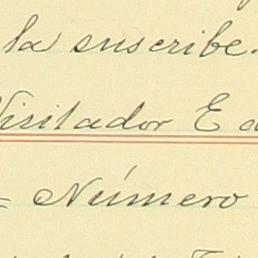 la suscribe.
Visitador E
= Número